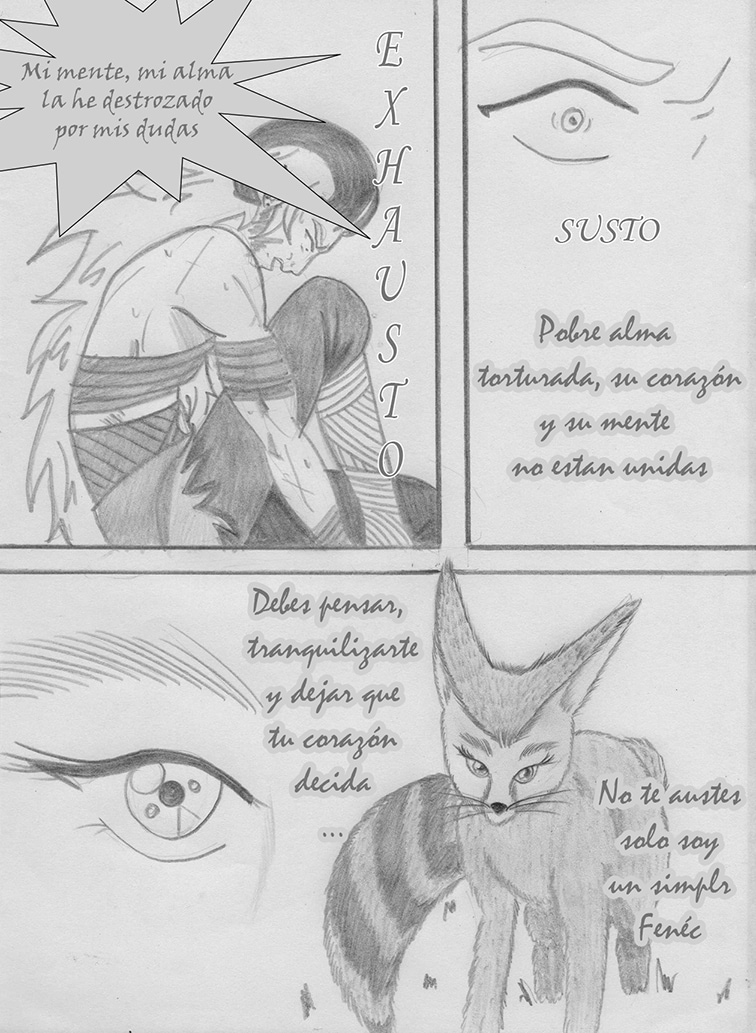 Mi mente, mi alma
la he destrozado
por mis dudas
EXHAUSTO
SUSTO
Pobre alma
torturada, su corazón
y su mente
no estan unidas
Debes pensar,
tranquilizarte
y dejar que
tu corazón
decida
...
No te austes
solo soy
un simplr
Fenéc